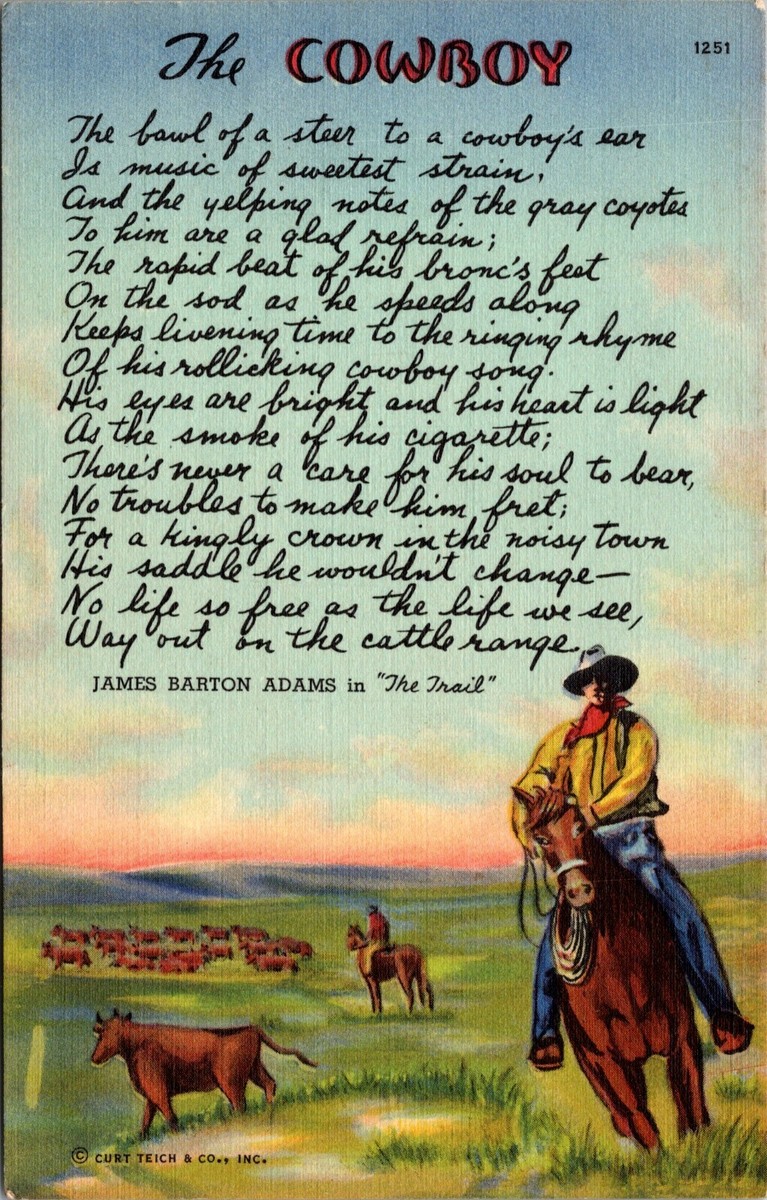 The COWBOY
1251
The bawl of a steer to a cowboy's ear
Is music of sweetest strain,
And the yelping notes of the gray coyotes
To him are a glad refrain;
The rapid beat of his bronc's feet
On the sod as he speeds along
Keeps livening time to the ringing rhyme
Of his rollicking cowboy song.
His eyes are bright and his heart is light
As the smoke of his cigarette;
There's never a care for his soul to bear,
No troubles to make him fret;
For a kingly crown in the noisy town
His saddle he wouldn't change—
No life so free as the life we see,
Way out on the cattle range.
JAMES BARTON ADAMS in "The Trail"
© CURT TEICH & CO., INC.